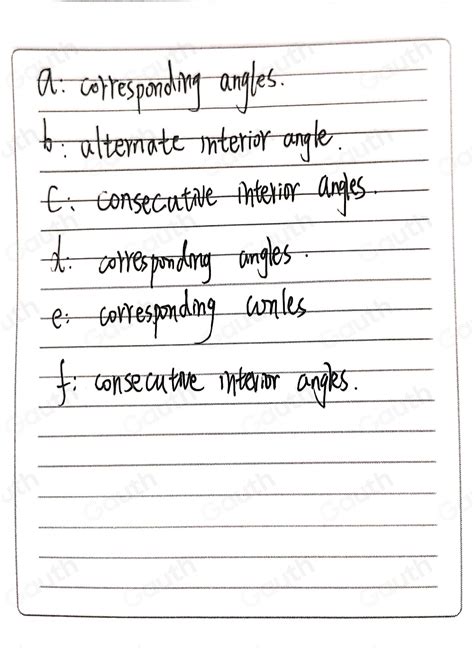 a: corresponding angles.
b: alternate interior angle.
C: consecutive interior angles.
d: corresponding angles.
e: corresponding
f: consecutive interior angles.